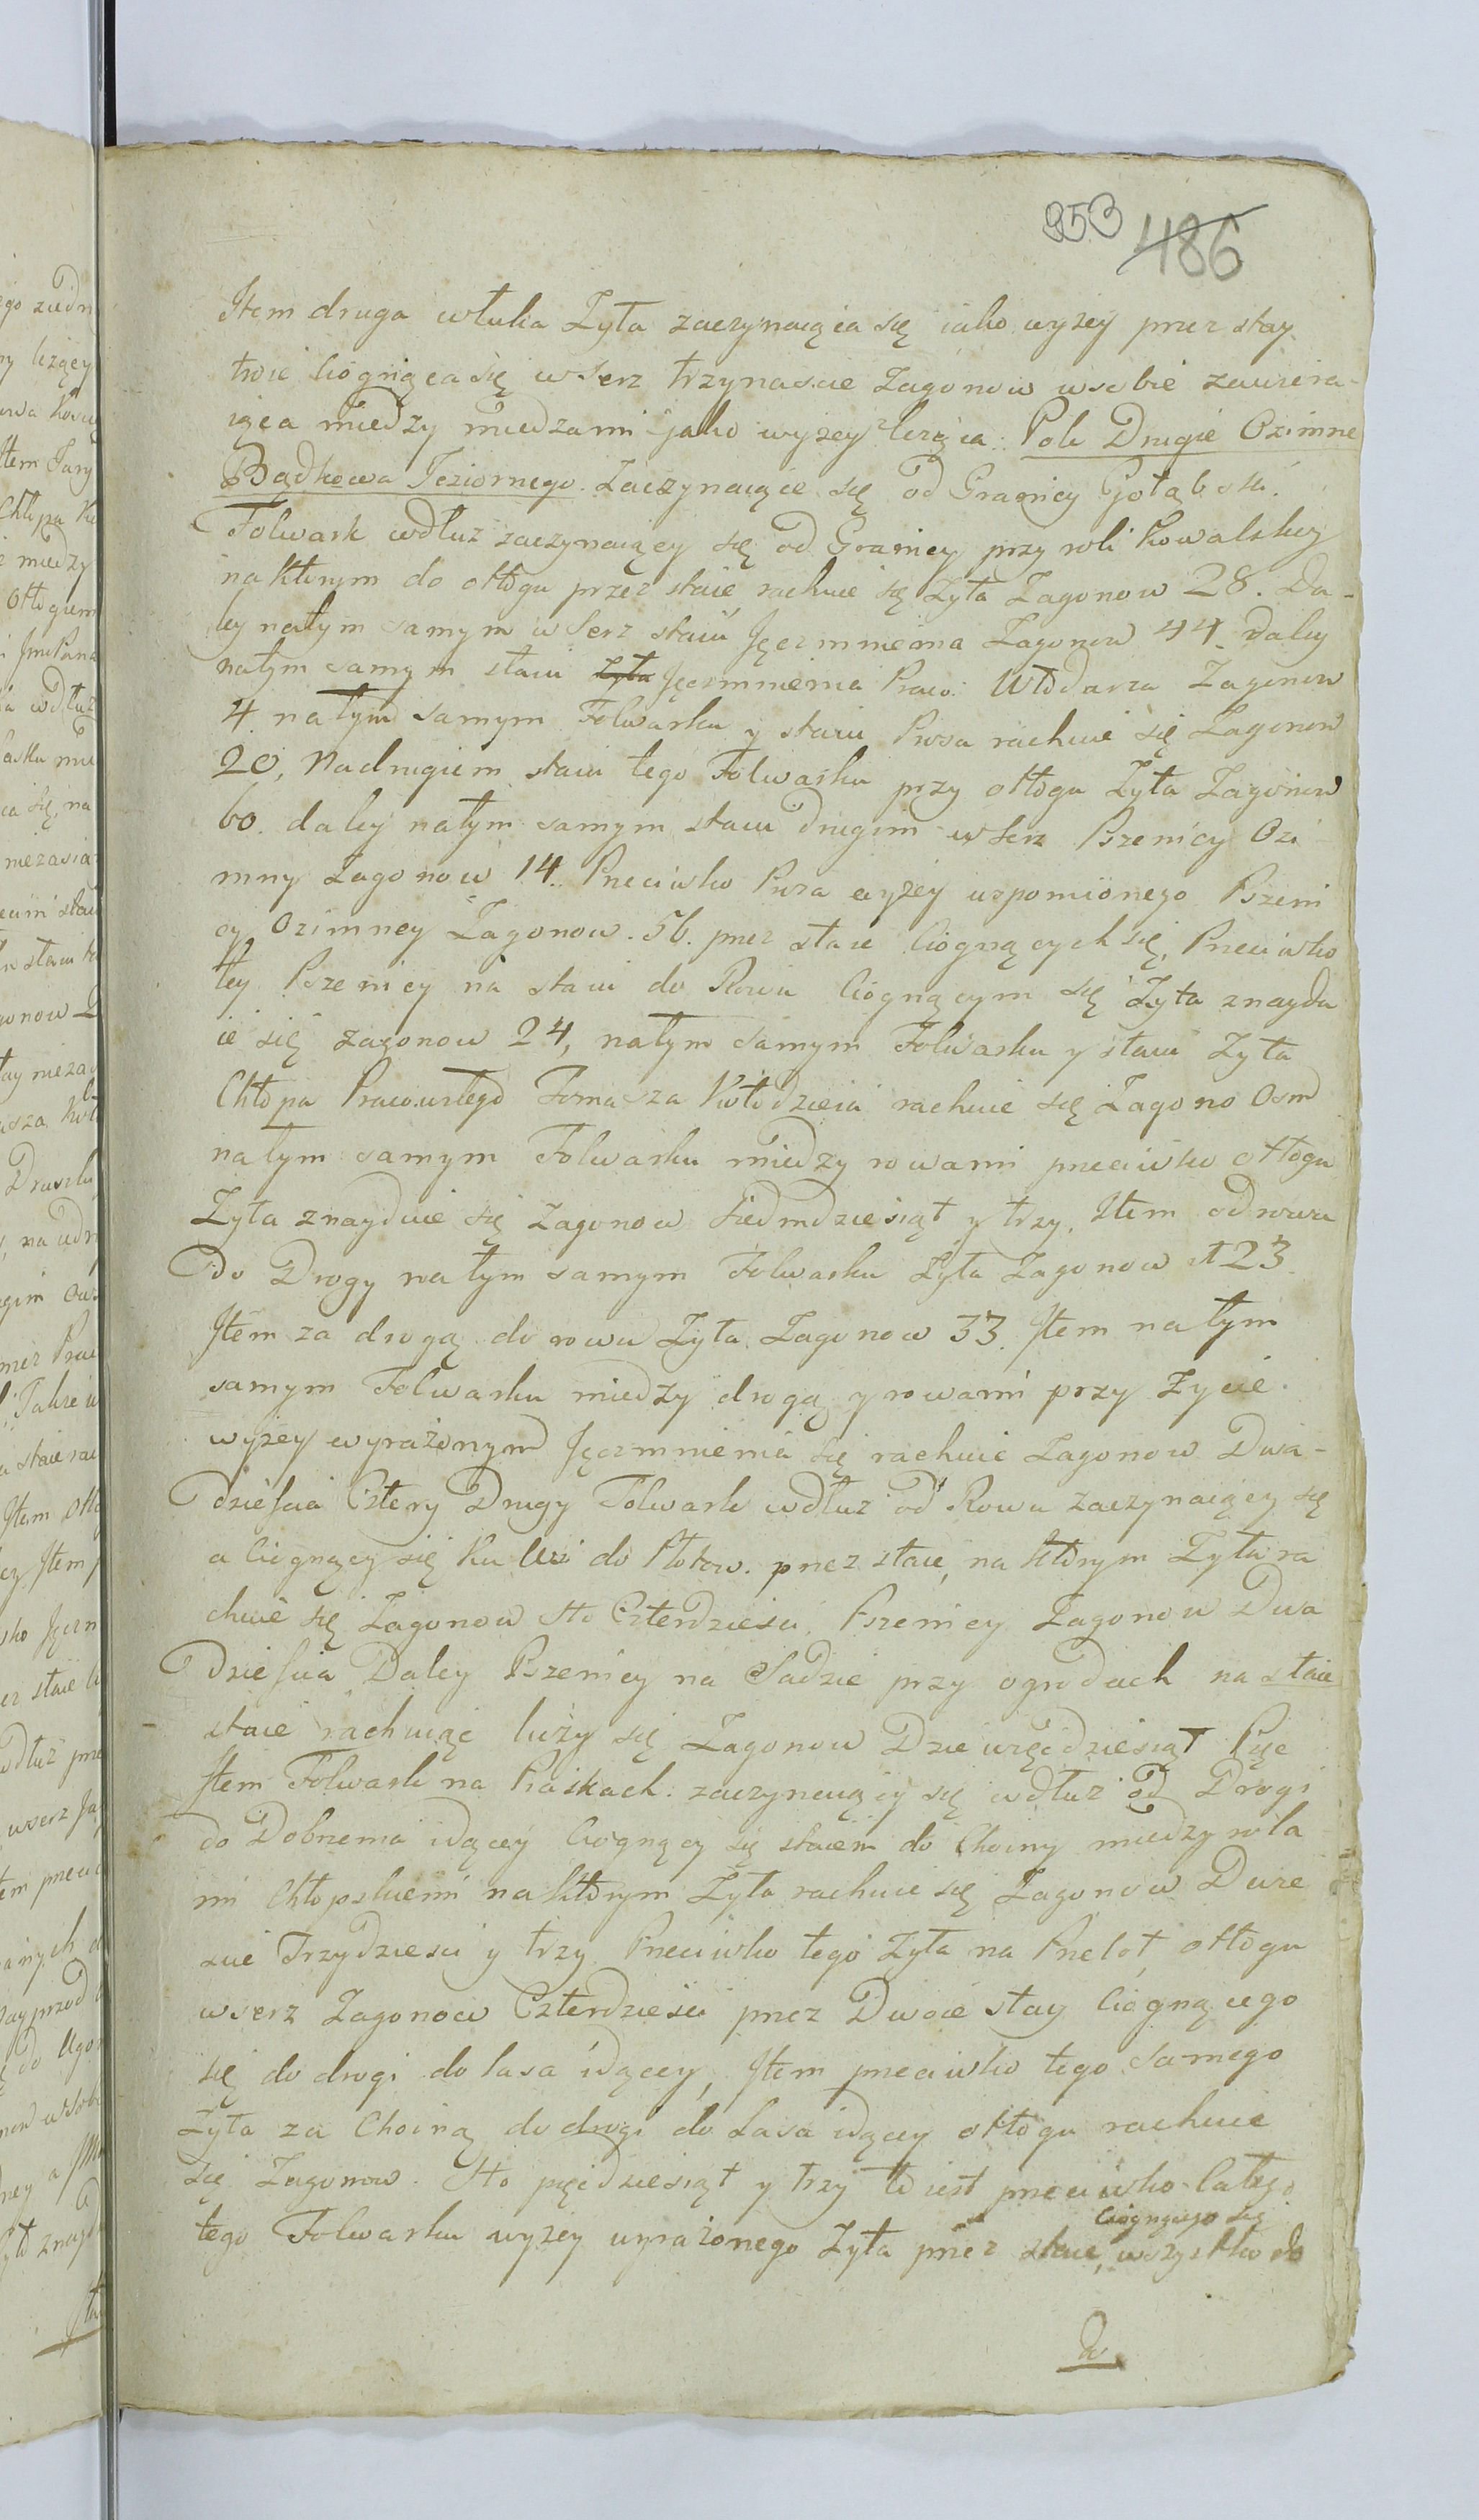 353 486
Item druga włuka Zyta zaczynaiąca się iako wyzey przez stay
troie ciągnąca się w Serz trzynascie Zagonow w sobie zawiera-
iąca miedzy miedzami jako wyzey leząca. Pole Drugie Ozimne
Bądkowa Jeziornego. Zaczynaiące się od Granicy Gołąbsk.
Folwark wdłuz zaczynaiący się od Granicy przy roli Kowalskiey
na ktorym do ołtogu przez staie rachuie się Zyta Zagonow 28. Da-
ley natym samym w Serz staiu Jęczmnienia Zagonow 44. daley
natym samym staiu Zyta Jęczmnienia Praco: Włodarza Zagonow
4. natym samym Folwarku y staiu Prosa rachuie się Zagonow
20, Nadrugiem staiu tego Folwarku przy ołtogu Zyta Zagonow
60. daley natym samym staiu drugim w Serz Pszenicy Ozi
mny Zagonow 14. Przeciwko Prosa wyzey wspomionego Pszeni
cy Ozimney Zagonow. 56. przez staie Ciągnących się, Przeciwko
tey Pszenicy na staiu do Rowu Ciągnącym się Zyta znaydu
ie się zagonow 24, natym samym Folwarku y staiu Zyta
Chłopa Pracowitego Tomasza Kołodzieia rachuie się Zagono Osm
natym samym Folwarku miedzy rowami przeciwko ołtogu
Zyta znayduie się Zagonow Siedmdziesiąt y trzy. Item od rowu
Do Drogy na tym samym Folwarku Zyta Zagonow 123
Item za drogą do rowu Zyta Zagonow 33. Item na tym
samym Folwarku miedzy drogą y rowami przy Zycie
wyzey wyrazonym Jęczmnienia się rachuie Zagonow Dwa-
dziescia Cztery Drugy Folwark wdłuz od Rowu zaczynaiący się
a Ciągnący się ku Wsi do Płotow. przez staie, na ktorym Zyta ra
chuie się Zagonow Sto Czterdziesci, Pszenicy Zagonow Dwa
dziescia Daley Pszenicy na Sadzie przy ogrodach na staie
staie rachuiąc liczy się Zagonow Dziewięcdziesiąt Pięc
Item Folwark na Piaskach zaczynaiący się wdłuz od Drogi
do Dobrzema idącey Ciągnący się staiem do Choiny miedzy rola
mi Chłopskiemi na ktorym Zyta rachuie się Zagonow Dwie
scie Trzydziesci y trzy Przeciwko tego Zyta na Przelot, ołtogu
wserz Zagonow Czterdziesci przez Dwoie stay Ciągnącego
się do drogi do lasa idącey, Item przeciwko tego samego
Zyta za Choiną do drogi do Lasa idącey ołtogu rachuie
się Zagonow. Sto pięcdziesiąt y trzy to iest przeciwko całego
Ciągnącego się
tego Folwarku wyzey wyrazonego Zyta przez staie, wszystko do